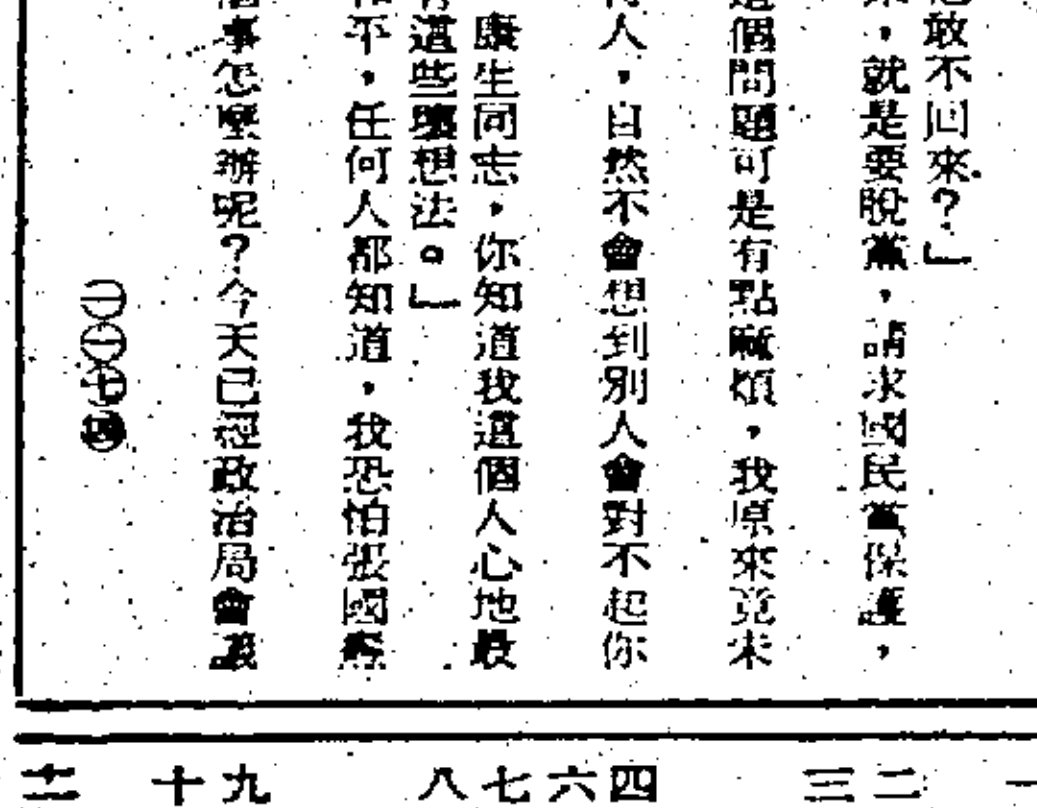 敢不回來？」
，就是要脫黨，請求國民黨保護，
個問題可是有點麻煩，我原來竟未
人，自然不會想到別人會對不起你
康生同志，你知道我這個人心地最
這些壞想法。」
平，任何人都知道，我恐怕張國燾
事怎麼辦呢？今天已經政治局會議
㊀㊀㊆㊃
一 二 三 四 六 七 八 九 十